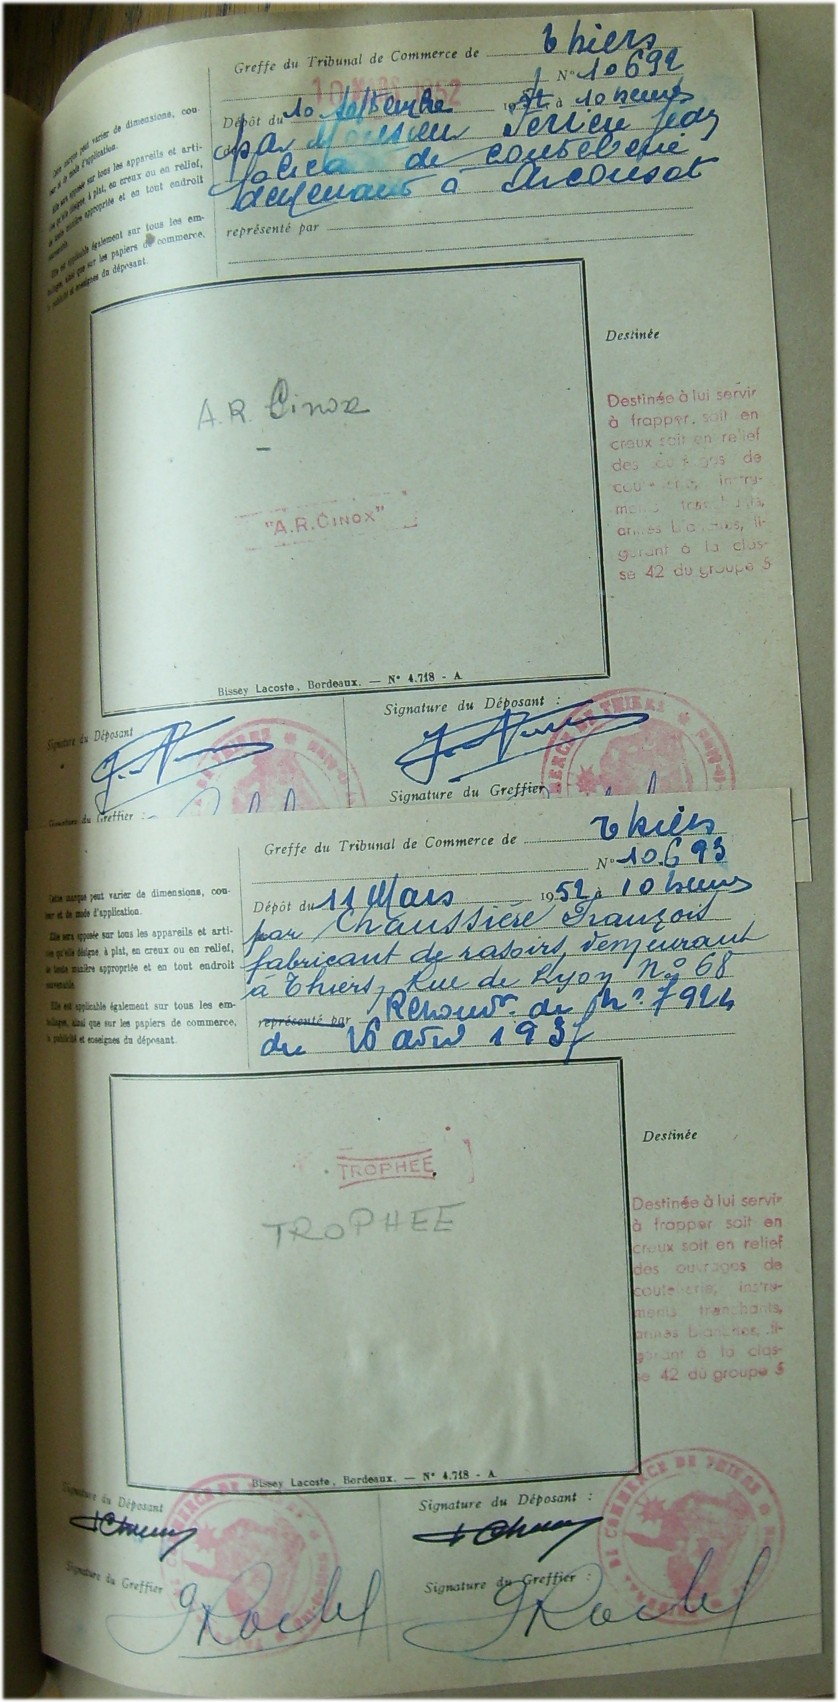 Greffe du Tribunal de Commerce de Thiers
10 MARS 1952
N° 10692
Dépôt du 10 1952 à 10 heures
par Monsieur Perrier Jean
fabricant de coutellerie
demeurant à Arconsat
représenté par
Cette marque peut varier de dimensions, cou-
leur et de mode d'application.
Elle sera apposée sur tous les appareils et arti-
cles qu'elle désigne, à plat, en creux ou en relief,
de toute manière appropriée et en tout endroit
convenable.
Elle est applicable également sur tous les em-
ballages, ainsi que sur les papiers de commerce,
la publicité et enseignes du déposant.
A.R. Cinox
"A.R.CINOX"
Destinée
Destinée à lui servir
à frapper, soit en
creux soit en relief
des ouvrages de
coutellerie, instru-
ments tranchants,
armes blanches, fi-
gurant à la clas-
se 42 du groupe 5
Bissey Lacoste, Bordeaux. — N° 4.718 - A
Signature du Déposant
Signature du Déposant :
Signature du Greffier :
Signature du Greffier
Greffe du Tribunal de Commerce de Thiers
N° 10.693
Dépôt du 11 Mars 1952 à 10 heures
par Chaussière François
fabricant de rasoirs, demeurant
à Thiers, Rue de Lyon N° 68
représenté par Renouv. du N° 7924
du 16 avril 1937
Cette marque peut varier de dimensions, cou-
leur et de mode d'application.
Elle sera apposée sur tous les appareils et arti-
cles qu'elle désigne, à plat, en creux ou en relief,
de toute manière appropriée et en tout endroit
convenable.
Elle est applicable également sur tous les em-
ballages, ainsi que sur les papiers de commerce,
la publicité et enseignes du déposant.
TROPHEE
TROPHEE
Destinée
Destinée à lui servir
à frapper soit en
creux soit en relief
des ouvrages de
coutellerie, instru-
ments tranchants,
armes blanches, fi-
gurant à la clas-
se 42 du groupe 5
Bissey Lacoste, Bordeaux. — N° 4.718 - A.
Signature du Déposant
Signature du Déposant :
Signature du Greffier
Signature du Greffier :